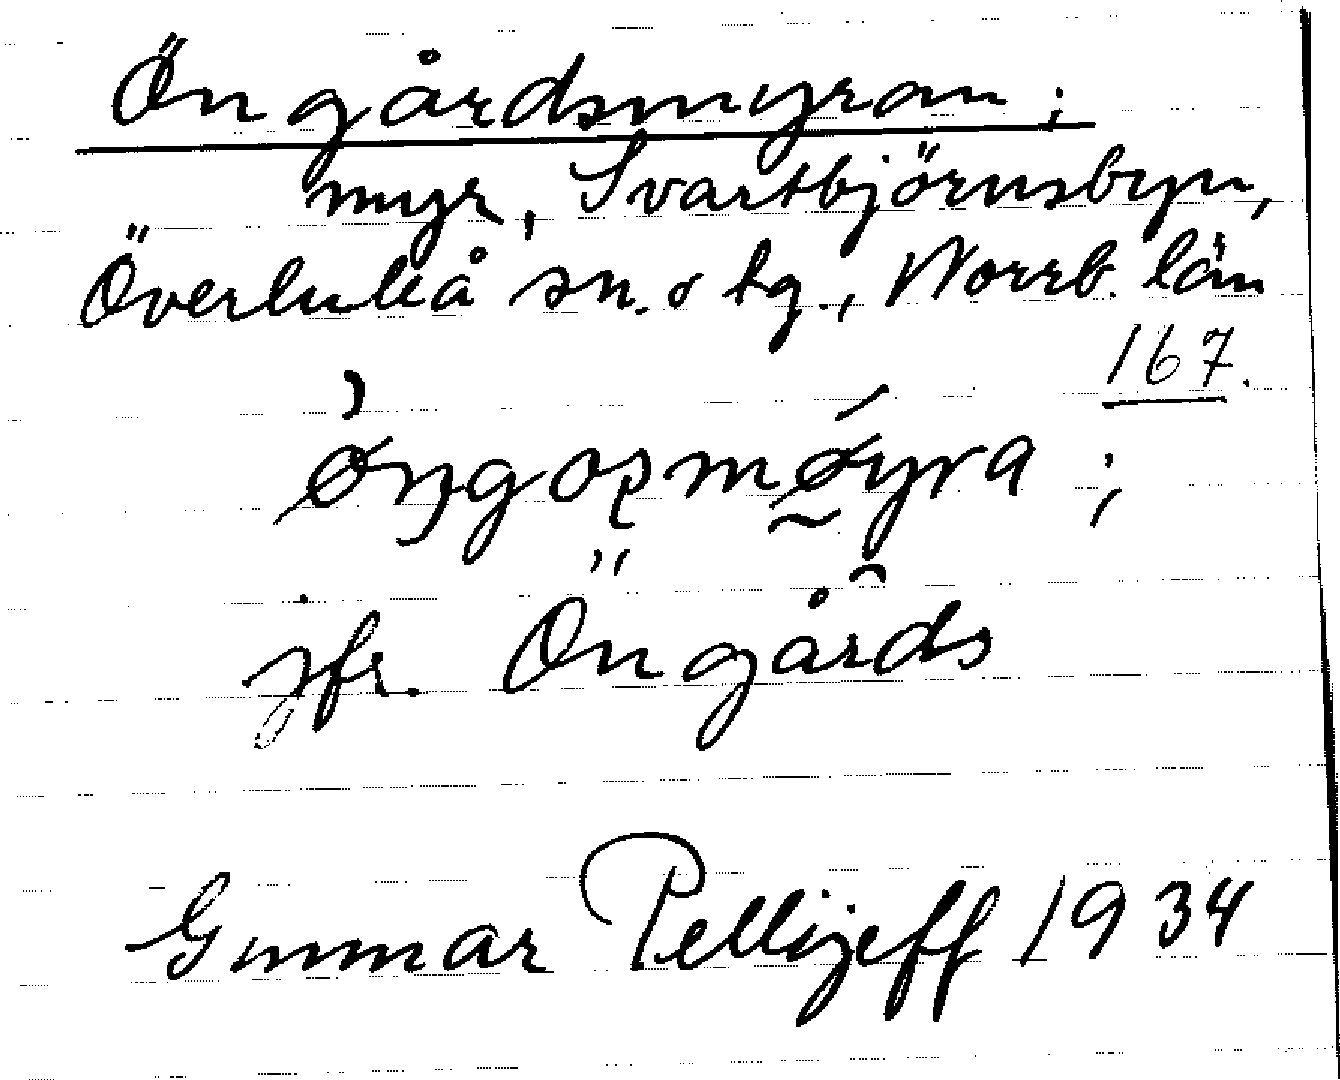 Öngårdsmyran;
myr, Svartbjörnsbyn,
Överluleå sn. o tg., Norrb. län
167.
jfr. Öngårds
Gunnar Pellijeff 1934